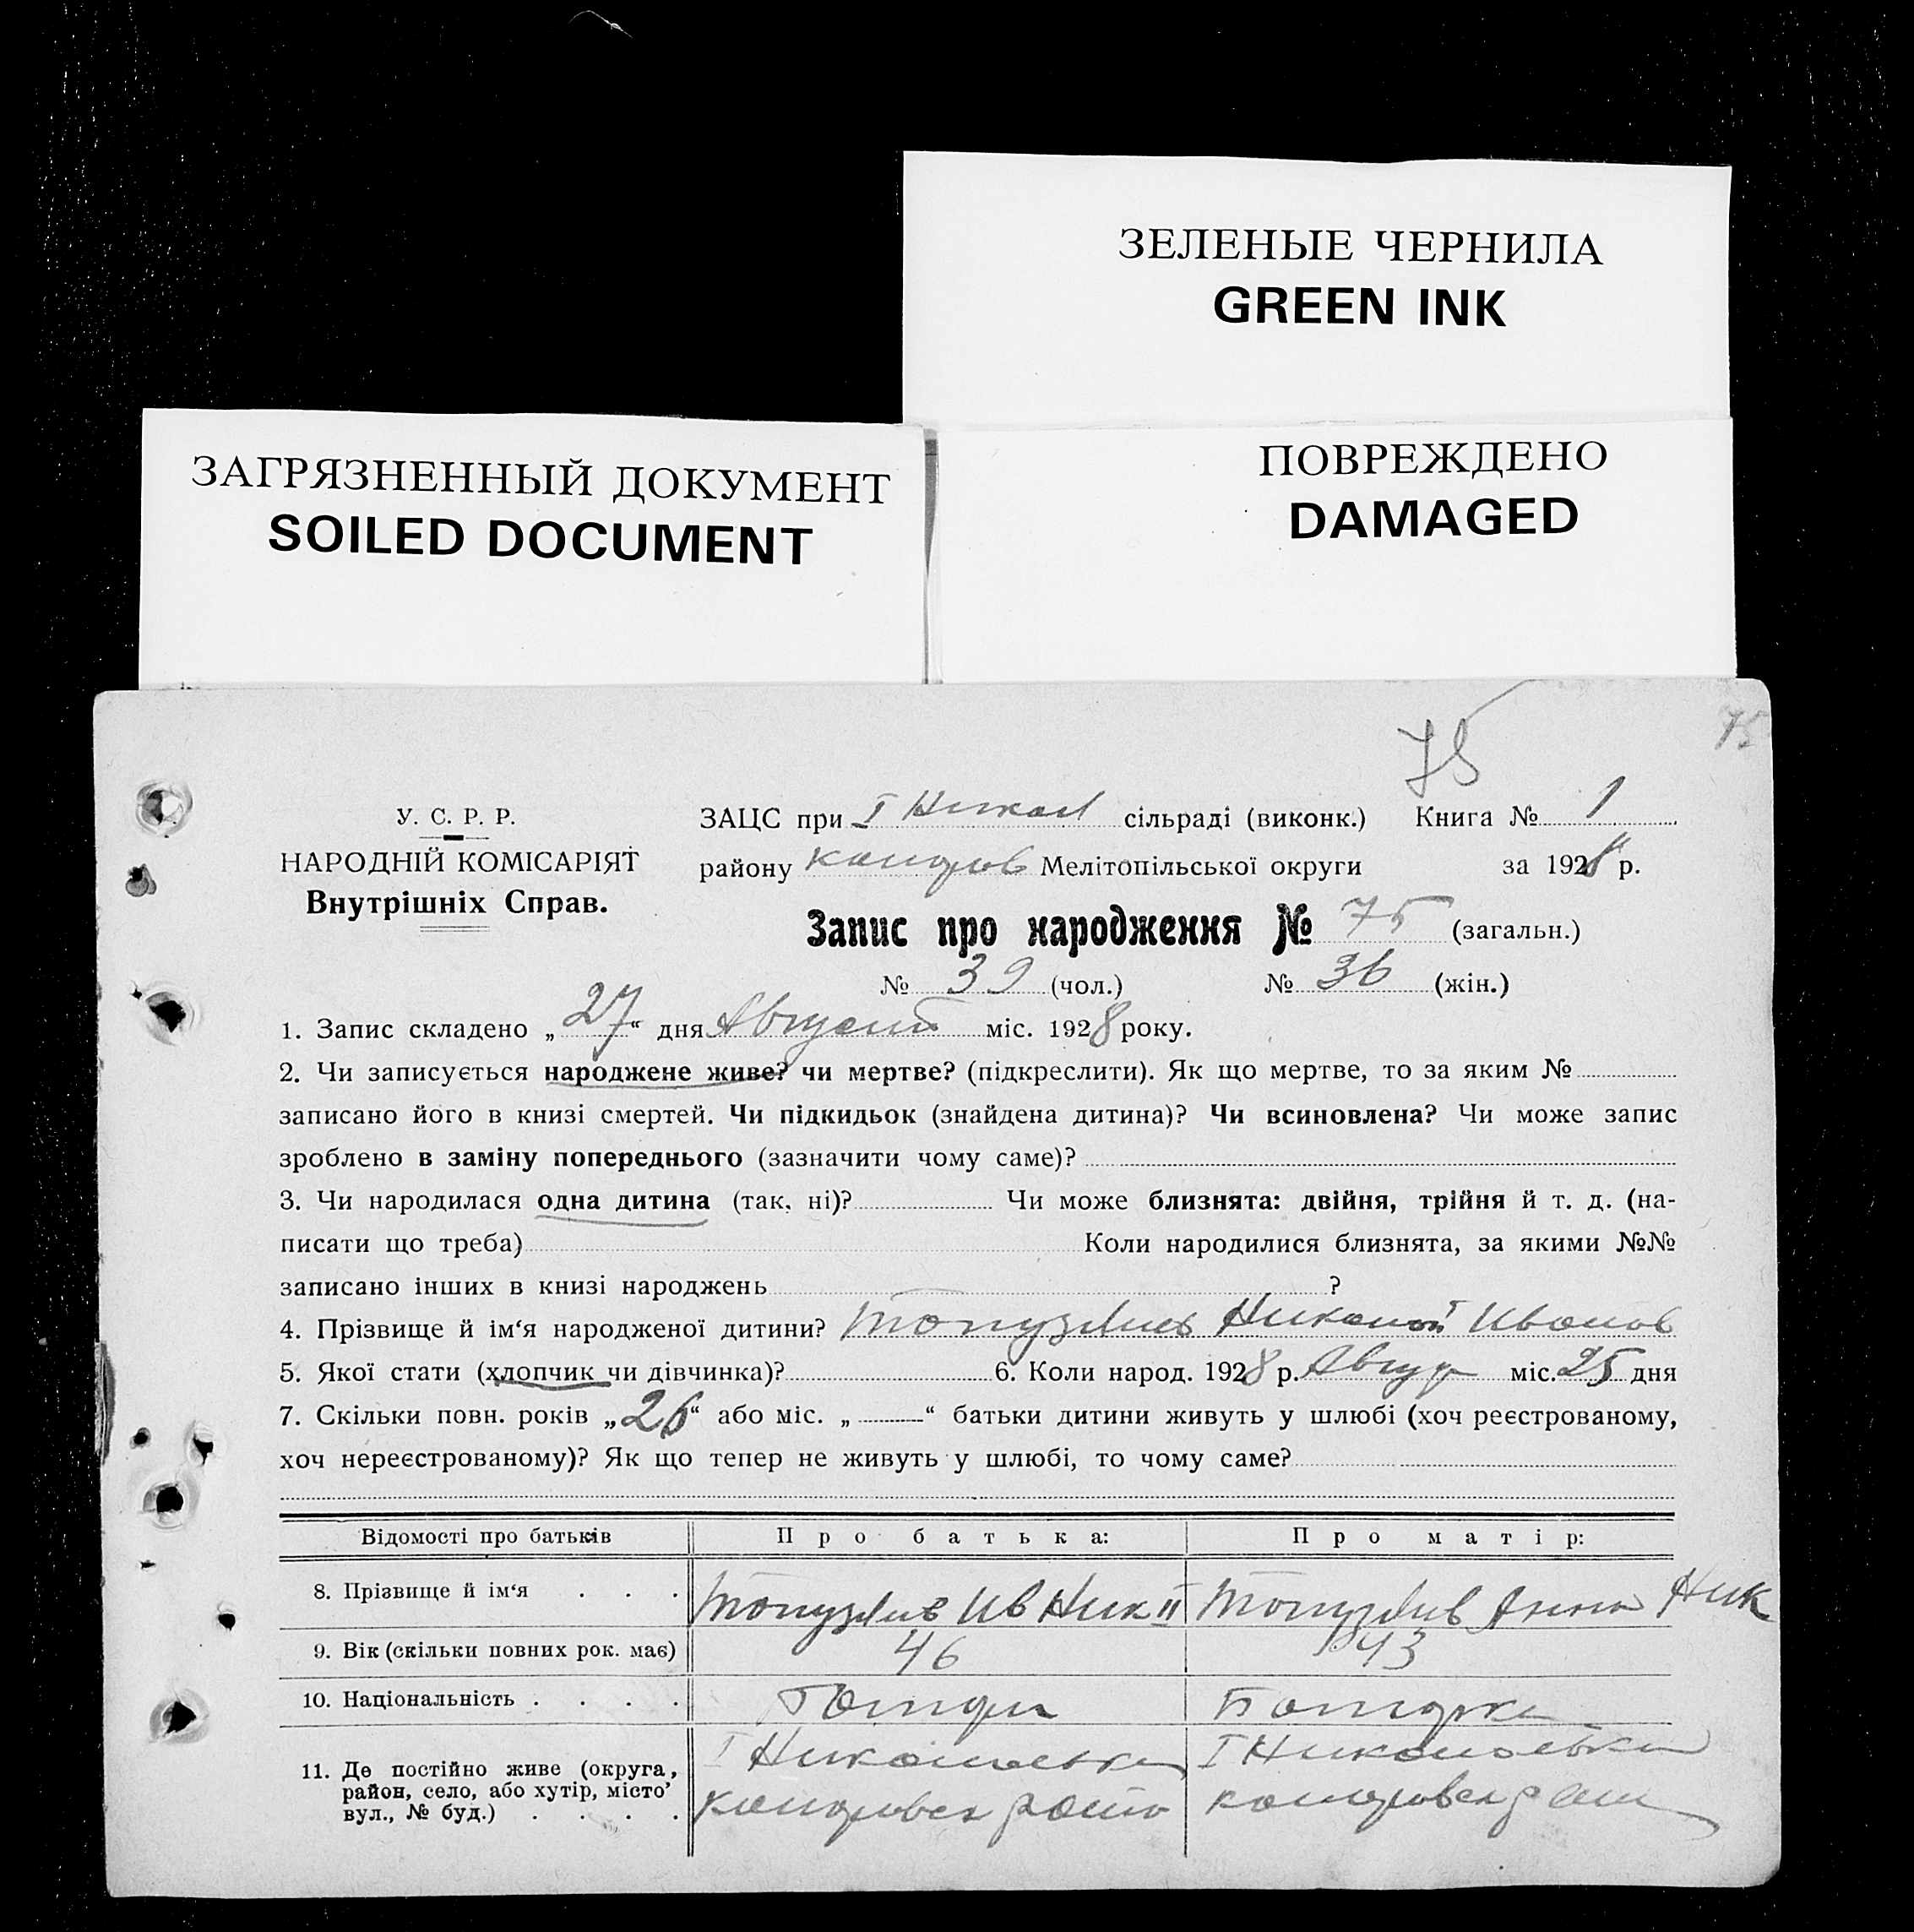 ЗЕЛЕНЫЕ ЧЕРНИЛА
GREEN INK
ЗАГРЯЗНЕННЫЙ ДОКУМЕНТ
SOILED DOCUMENT
ПОВРЕЖДЕНО
DAMAGED
75
75
У. С. Р. Р.
НАРОДНІЙ КОМІСАРІЯТ
Внутрішніх Справ.
ЗАЦС при І Никол сільраді (виконк.) Книга № 1
району Мелітопільської округи за 1928 р.
Запис про народження № 75 (загальн.)
№ 39 (чол.) № 36 (жін.)
1. Запис складено „27“ дня Август міс. 1928 року.
2. Чи записується народжене живе? чи мертве? (підкреслити). Як що мертве, то за яким №
записано його в книзі смертей. Чи підкидьок (знайдена дитина)? Чи всиновлена? Чи може запис
зроблено в заміну попереднього (зазначити чому саме)?
3. Чи народилася одна дитина (так, ні)? Чи може близнята: двійня, трійня й т. д. (на-
писати що треба) Коли народилися близнята, за якими №№
записано інших в книзі народжень ?
4. Прізвище й ім‘я народженої дитини? Николай Иванов
5. Якої стати (хлопчик чи дівчинка)? 6. Коли народ. 1928 р. міс. 25 дня
7. Скільки повн. років „26“ або міс. „ “ батьки дитини живуть у шлюбі (хоч реєстрованому,
хоч нереєстрованому)? Як що тепер не живуть у шлюбі, то чому саме?
Відомості про батьків Про батька: Про матір:
8. Прізвище й ім‘я . . . Ив Ник II Анна Ник
9. Вік (скільки повних рок. має) 46 43
10. Національність . . . .
11. Де постійно живе (округа, І І
район, село, або хутір, місто’
вул., № буд.) . . . .